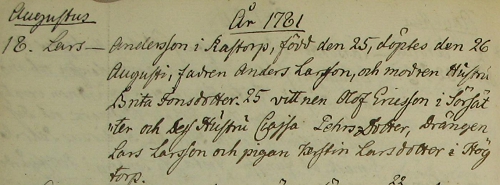 Augustus År 1781
18. Lars – Andersson i Kastorp, född den 25, döptes den 26
Augusti, fadren Anders Larsson, och modren Hústrú
Brita Jonsdotter. 25 vittnen Olof Ericsson i Sörsät
ter och dess Hústrú Cajsa Pehrs Dotter, Drängen
Lars Larsson och pigan Kerstin Larsdotter i Hög
torp.